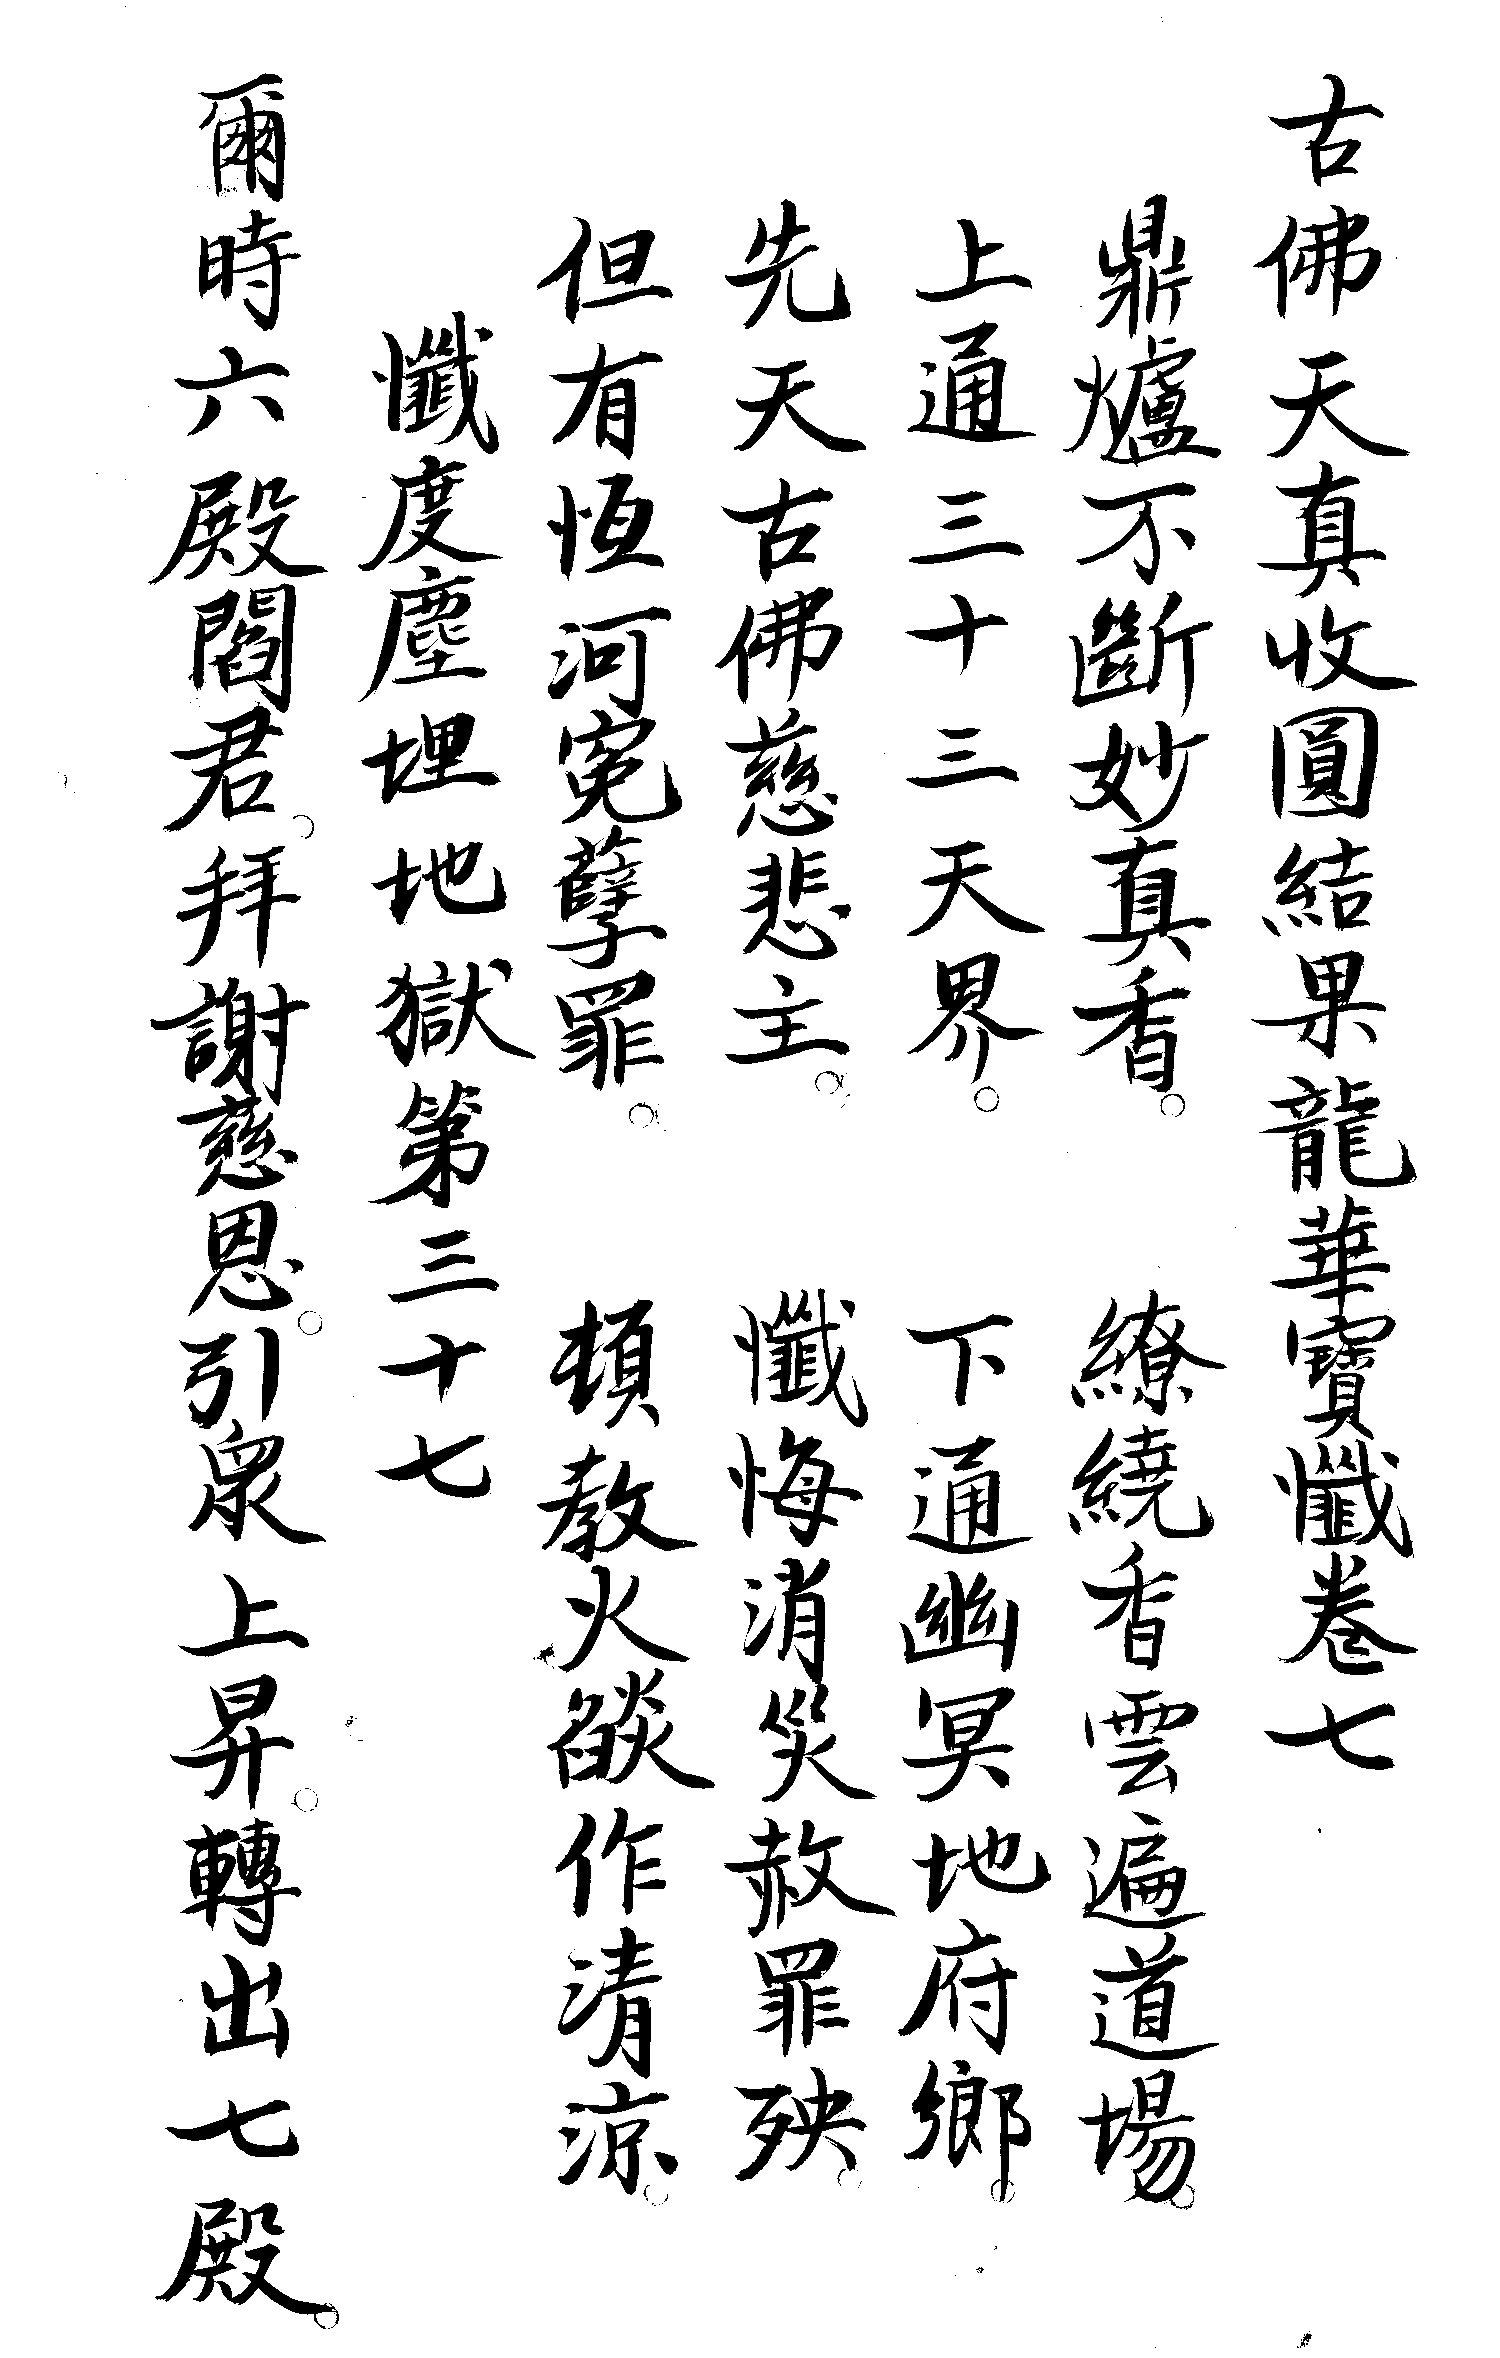 古佛天真收圓結果龍華寶懺卷七
鼎爐不斷妙真香。 繚繞香雲遍道場。
上通三十三天界。 下通幽冥地府鄉。
先天古佛慈悲主。 懺悔消災赦罪殃。
但有恆河冤孽罪。 頓教火燄作清涼。
懺度塵埋地獄第三十七
爾時六殿閻君。拜謝慈恩。引眾上昇。轉出七殿。